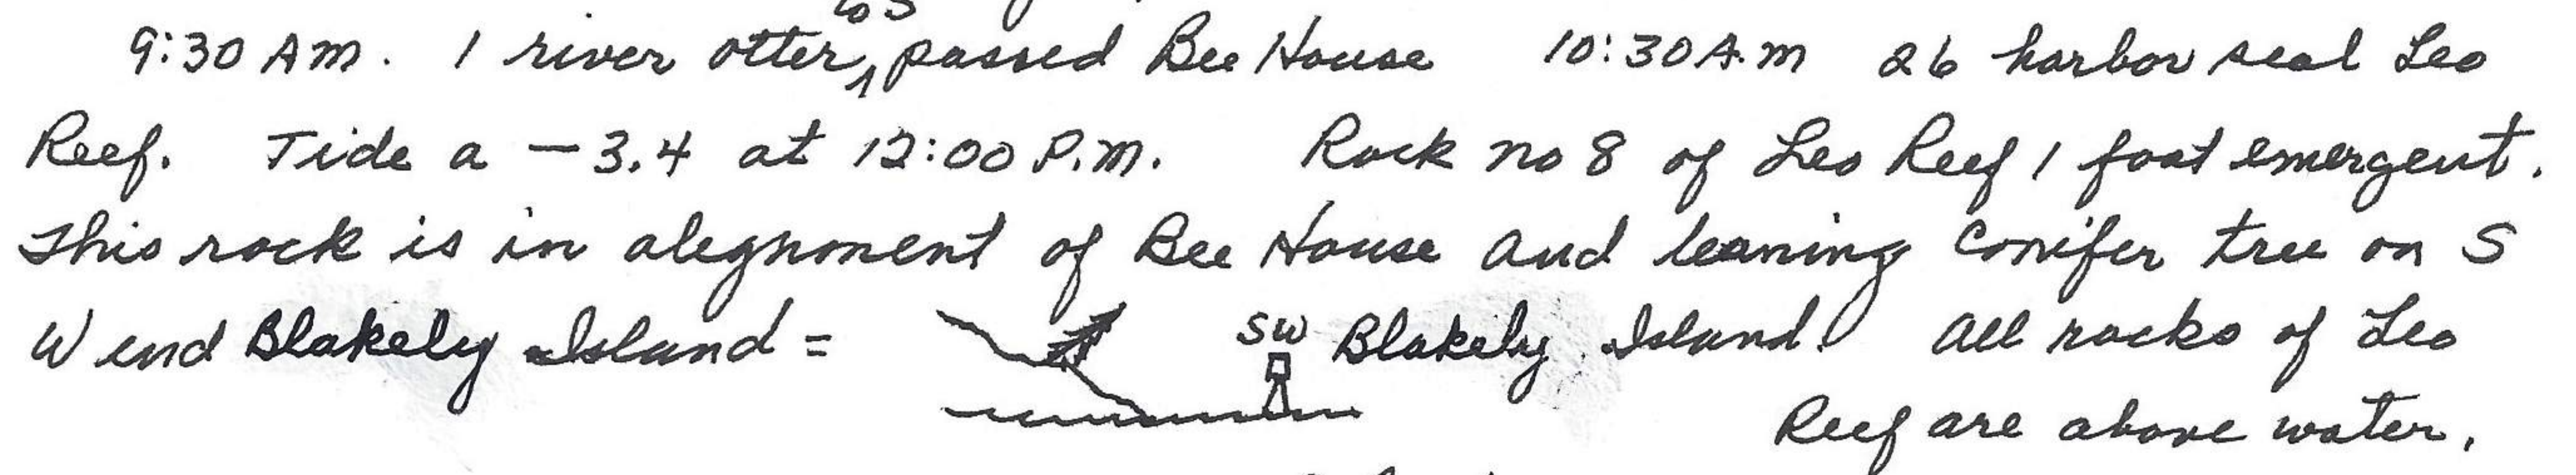 9:30 AM. 1 river otter to S passed Bee House 10:30 A.M 26 harbor seal Leo
Reef. Tide a -3.4 at 12:00 P.M. Rock no 8 of Leo Reef 1 foot emergent.
This rock is in alegnment of Bee House and leaning conifer tree on S
W end Blakely Island = SW Blakely Island. All rocks of Leo
Reef are above water.